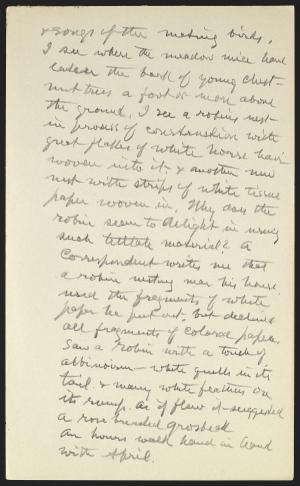 & songs of the mating birds.
I see where the meadow mice have
eaten the bark of young chest-
nut trees a foot or more above
the ground. I see a robins nest
in process of construction with
great flakes of white horse hair
woven into it & another new
nest with strips of white tissue
paper woven in. Why does the
robin seem to delight in using
such telltale material? A
correspondent writes me that
a robin nesting near his house
used the fragments of white
paper he put out, but declined
all fragments of colored paper.
Saw a robin with a touch of
albinoism – white quills in its
tail & many white feathers on
its rump. as it flew it suggested
a rose breasted grosbeak
An hours walk hand in hand
with April.